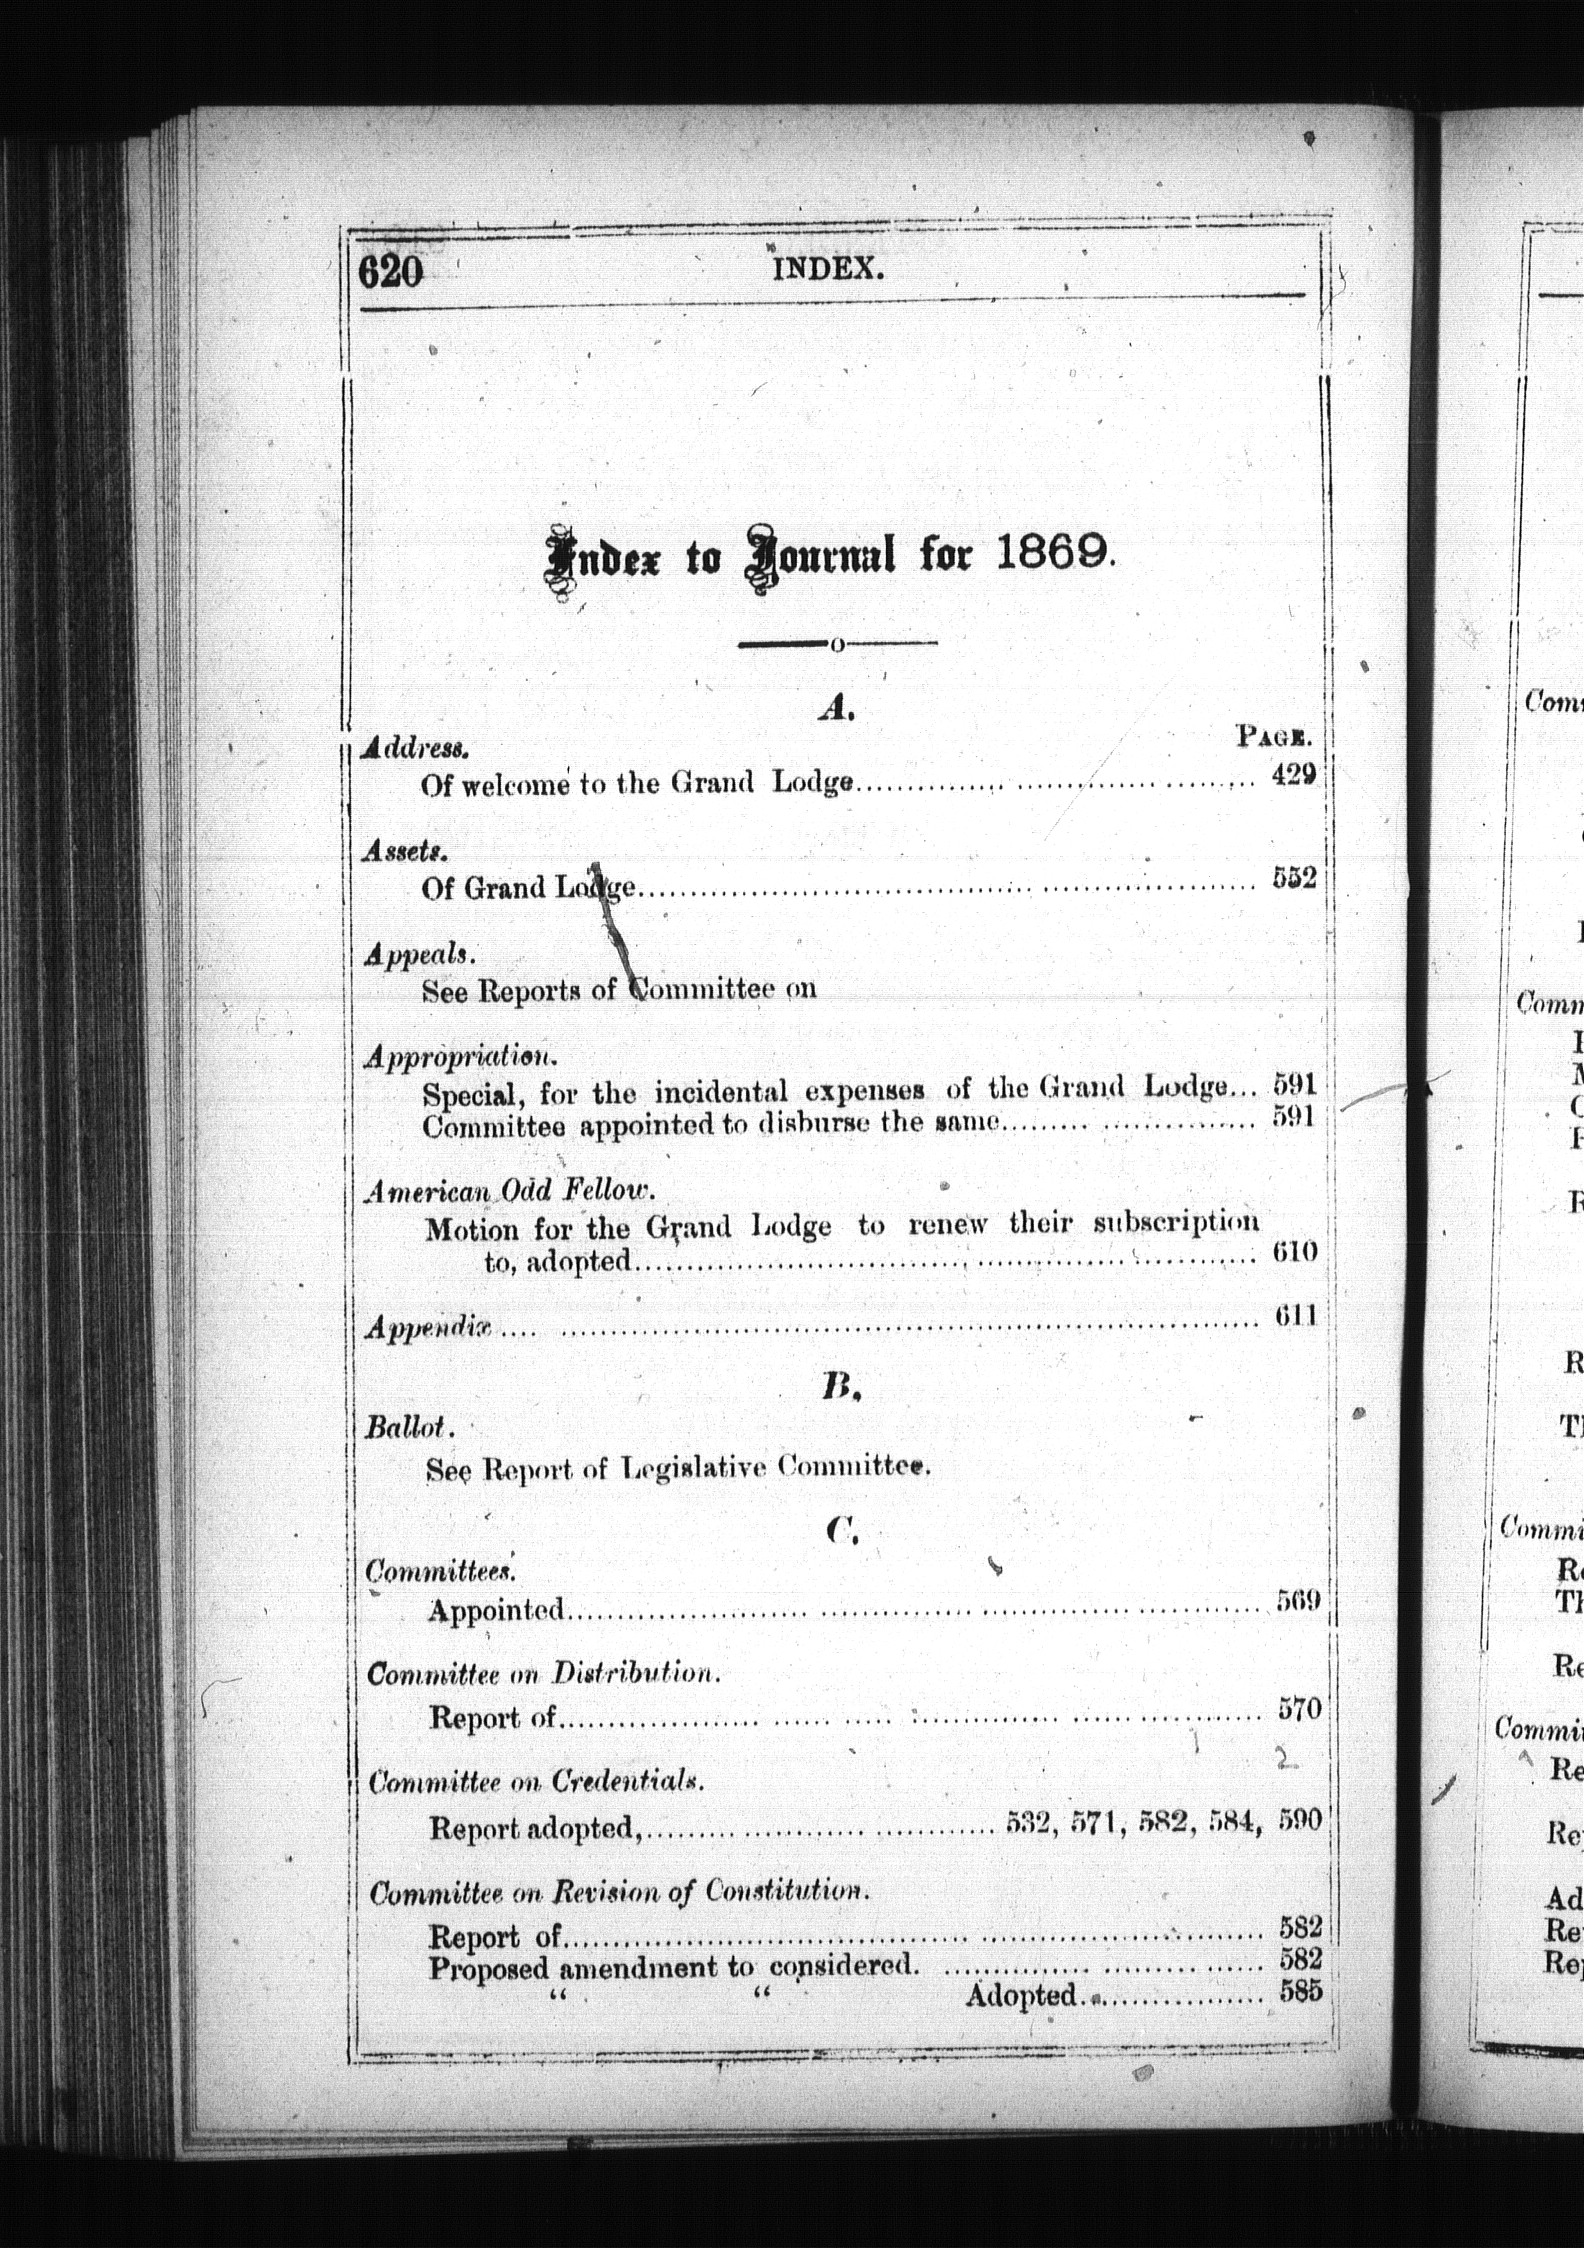 620 INDEX.
Index to Journal for 1869.
A.
PAGE.
Address.
Of welcome to the Grand Lodge.................................... 429
Assets.
Of Grand Lodge.................................................... 552
Appeals.
See Reports of Committee on
Appropriation.
Special, for the incidental expenses of the Grand Lodge... 591
Committee appointed to disburse the same....................... 591
American Odd Fellow.
Motion for the Grand Lodge to renew their subscription
to, adopted.................................................. 610
Appendix .... ...................................................... 611
B.
Ballot.
See Report of Legislative Committee.
C.
Committees.
Appointed........................................................ 569
Committee on Distribution.
Report of......................................................... 570
Committee on Credentials.
Report adopted,.............................. 532, 571, 582, 584, 590
Committee on Revision of Constitution.
Report of......................................................... 582
Proposed amendment to considered. ............................. 582
“ “ Adopted.................. 585